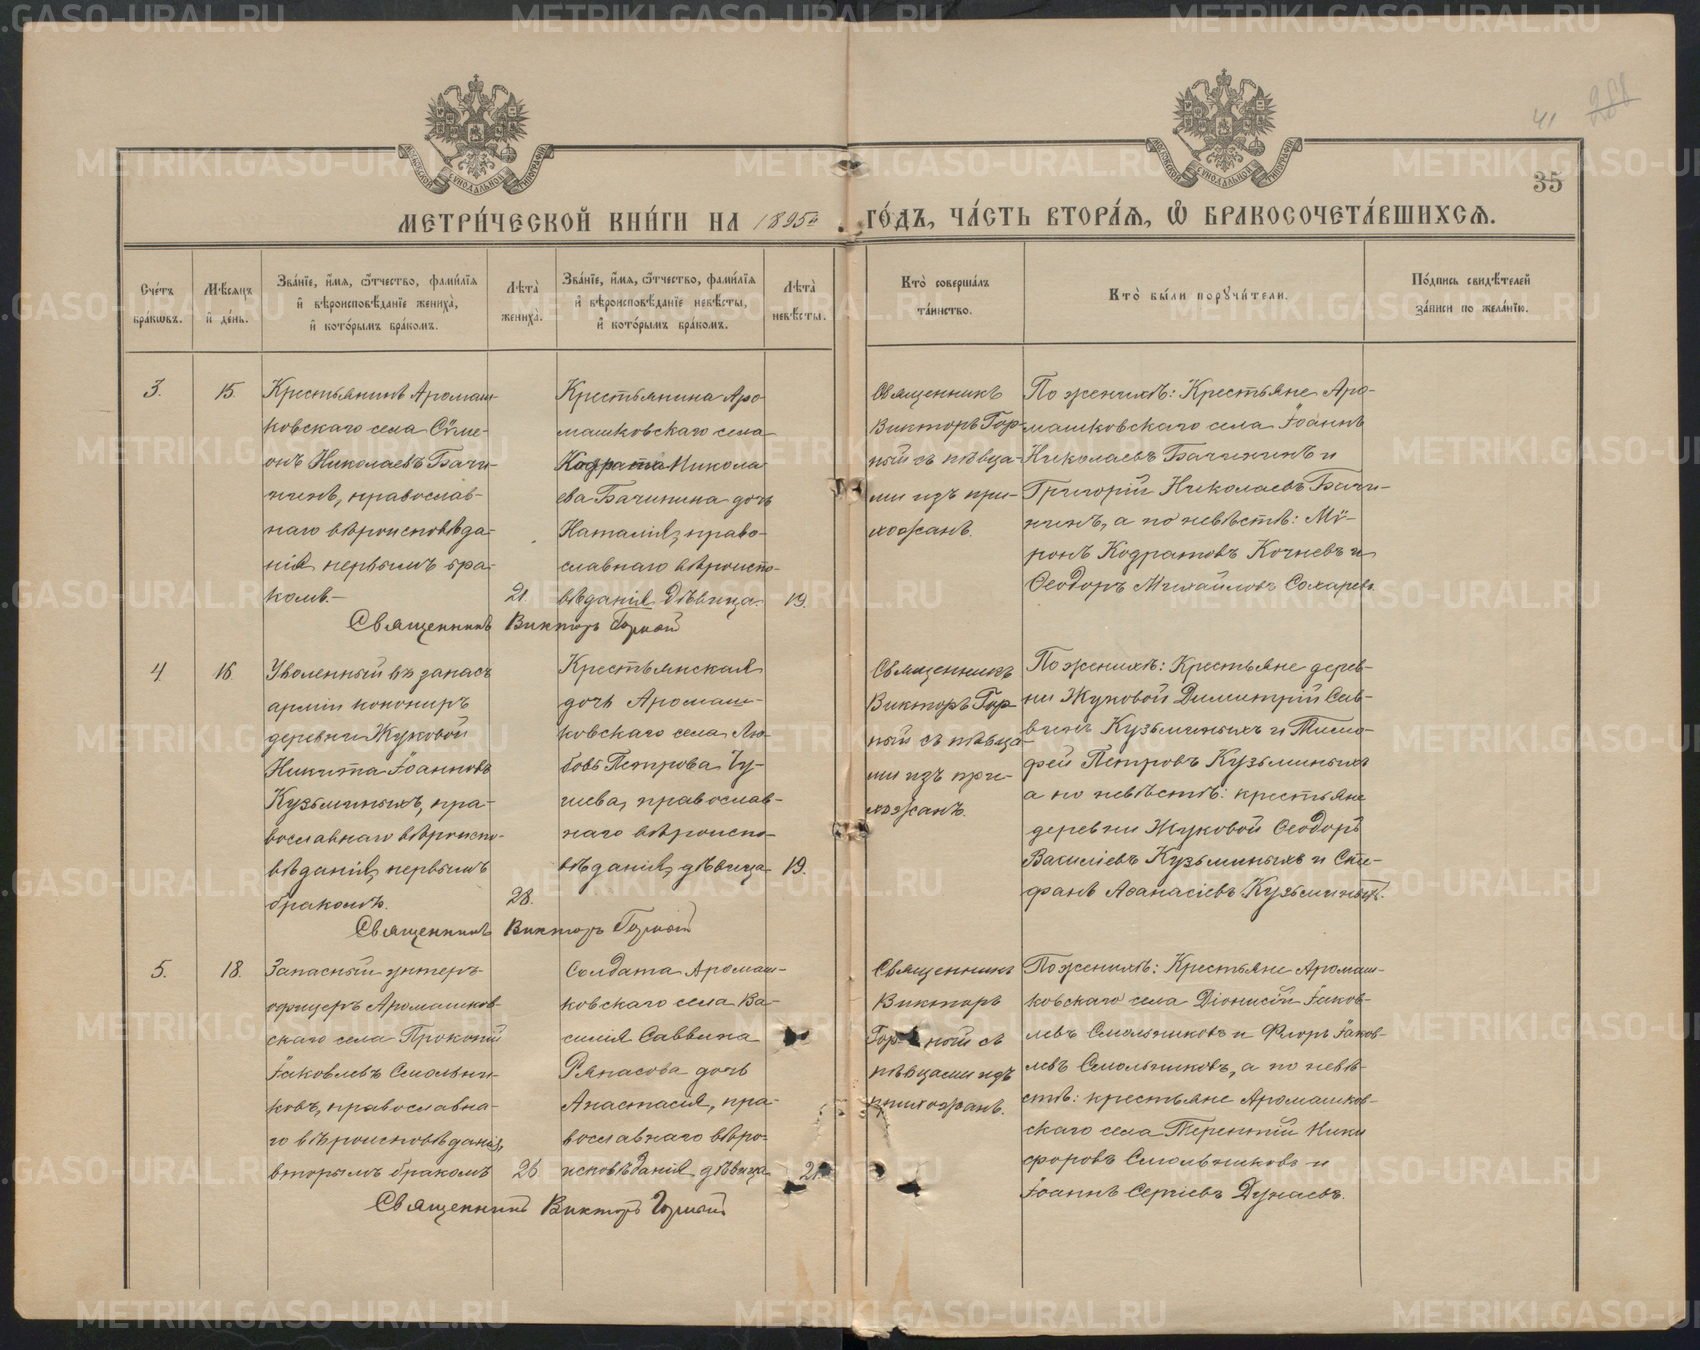 METRIKI.GASO-URAL.RU
41
МОСКОВСКОЙ СѴНОДАЛЬНОЙ ТИПОГРАФІИ
35
МЕТРИ́ЧЕСКОЙ КНИ́ГИ НА 1895й ГО́ДЪ, ЧА́СТЬ ВТОРА́Я, Ѽ БРАКОСОЧЕТА́ВШИХСЯ.
Сче́тъ бра́кѡвъ.
Мѣ́сяцъ и҆ де́нь.
Зва́нїе, и҆́мя, ѻ҆́тчество, фами́лїя и҆ вѣроисповѣ́данїе жениха̀, и҆ кото́рымъ бра́комъ.
Лѣта̀ жениха̀.
Зва́нїе, и҆́мя, ѻ҆́тчество, фами́лїя и҆ вѣроисповѣ́данїе невѣ́сты, и҆ кото́рымъ бра́комъ.
Лѣта̀ невѣ́сты.
Кто̀ соверша́лъ та́инство.
Кто̀ бы́ли порꙋчи́тели.
По́дпись свидѣ́телей за́писи по жела́нїю.
3.
15.
Крестьянинъ Аромаш-
ковскаго села Сѷме-
онъ Николаевъ Бачи-
нинъ, православ-
наго вѣроисповѣда-
нія первымъ бра-
комъ.-
21.
Крестьянина Аро-
машковскаго села
Кодрата Никола
ева Бачинина дочь
Наталія, право-
славнаго вѣроиспо-
вѣданія. Дѣвица.
19.
Священникъ
Викторъ Гор-
ный съ пѣвца-
ми изъ при-
хожанъ.
По женихѣ: Крестьяне Аро-
машковскаго села Іоаннъ
Николаевъ Бачининъ и
Григорій Николаевъ Бачи-
нинъ, а по невѣстѣ: Мѷ-
ронъ Кодратовъ Кочневъ и
Ѳеодоръ Михайловъ Сохаревъ.
Священникъ Викторъ Горной
4
16.
Уволенный въ запасъ
арміи канониръ
деревни Жуковой
Никита Іоанновъ
Кузьминыхъ, пра-
вославнаго вѣроиспо-
вѣданія, первымъ
бракомъ.
28.
Крестьянская
дочь Аромаш-
ковскаго села Лю-
бовь Петрова Чу-
шева, православ-
наго вѣроиспо-
вѣданія, дѣвица.
19.
Священникъ
Викторъ Гор-
ный съ пѣвца-
ми изъ при-
хожанъ.
По женихѣ: Крестьяне дерев-
ни Жуковой Димитрій Сав-
винъ Кузьминыхъ и Тимо-
фей Петровъ Кузьминыхъ
а по невѣстѣ: крестьяне
деревни Жуковой Ѳеодоръ
Василіевъ Кузьминыхъ и Сте-
фанъ Аѳанасіевъ Кузьминыхъ.
Священникъ Викторъ Горной
5.
18.
Запасный унтеръ-
офицеръ Аромашков-
скаго села Прокопій
Іаковлевъ Смольни-
ковъ, православна-
го вѣроисповѣданія,
вторымъ бракомъ
26
Солдата Аромаш-
ковскаго села Ва-
силія Саввина
Рянасова дочь
Анастасія, пра-
вославнаго вѣро-
исповѣданія дѣвица.
21.
Священникъ
Викторъ
Горный съ
пѣвцами изъ
прихожанъ.
По женихѣ: Крестьяне Аромаш-
ковскаго села Діонисій Іаков-
левъ Смольниковъ и Флоръ Іаков-
левъ Смольниковъ, а по невѣ-
стѣ: крестьяне Аромашков-
скаго села Терентій Ники
форовъ Смольниковъ и
Іоаннъ Сергіевъ Дунаевъ.
Священникъ Викторъ Горный